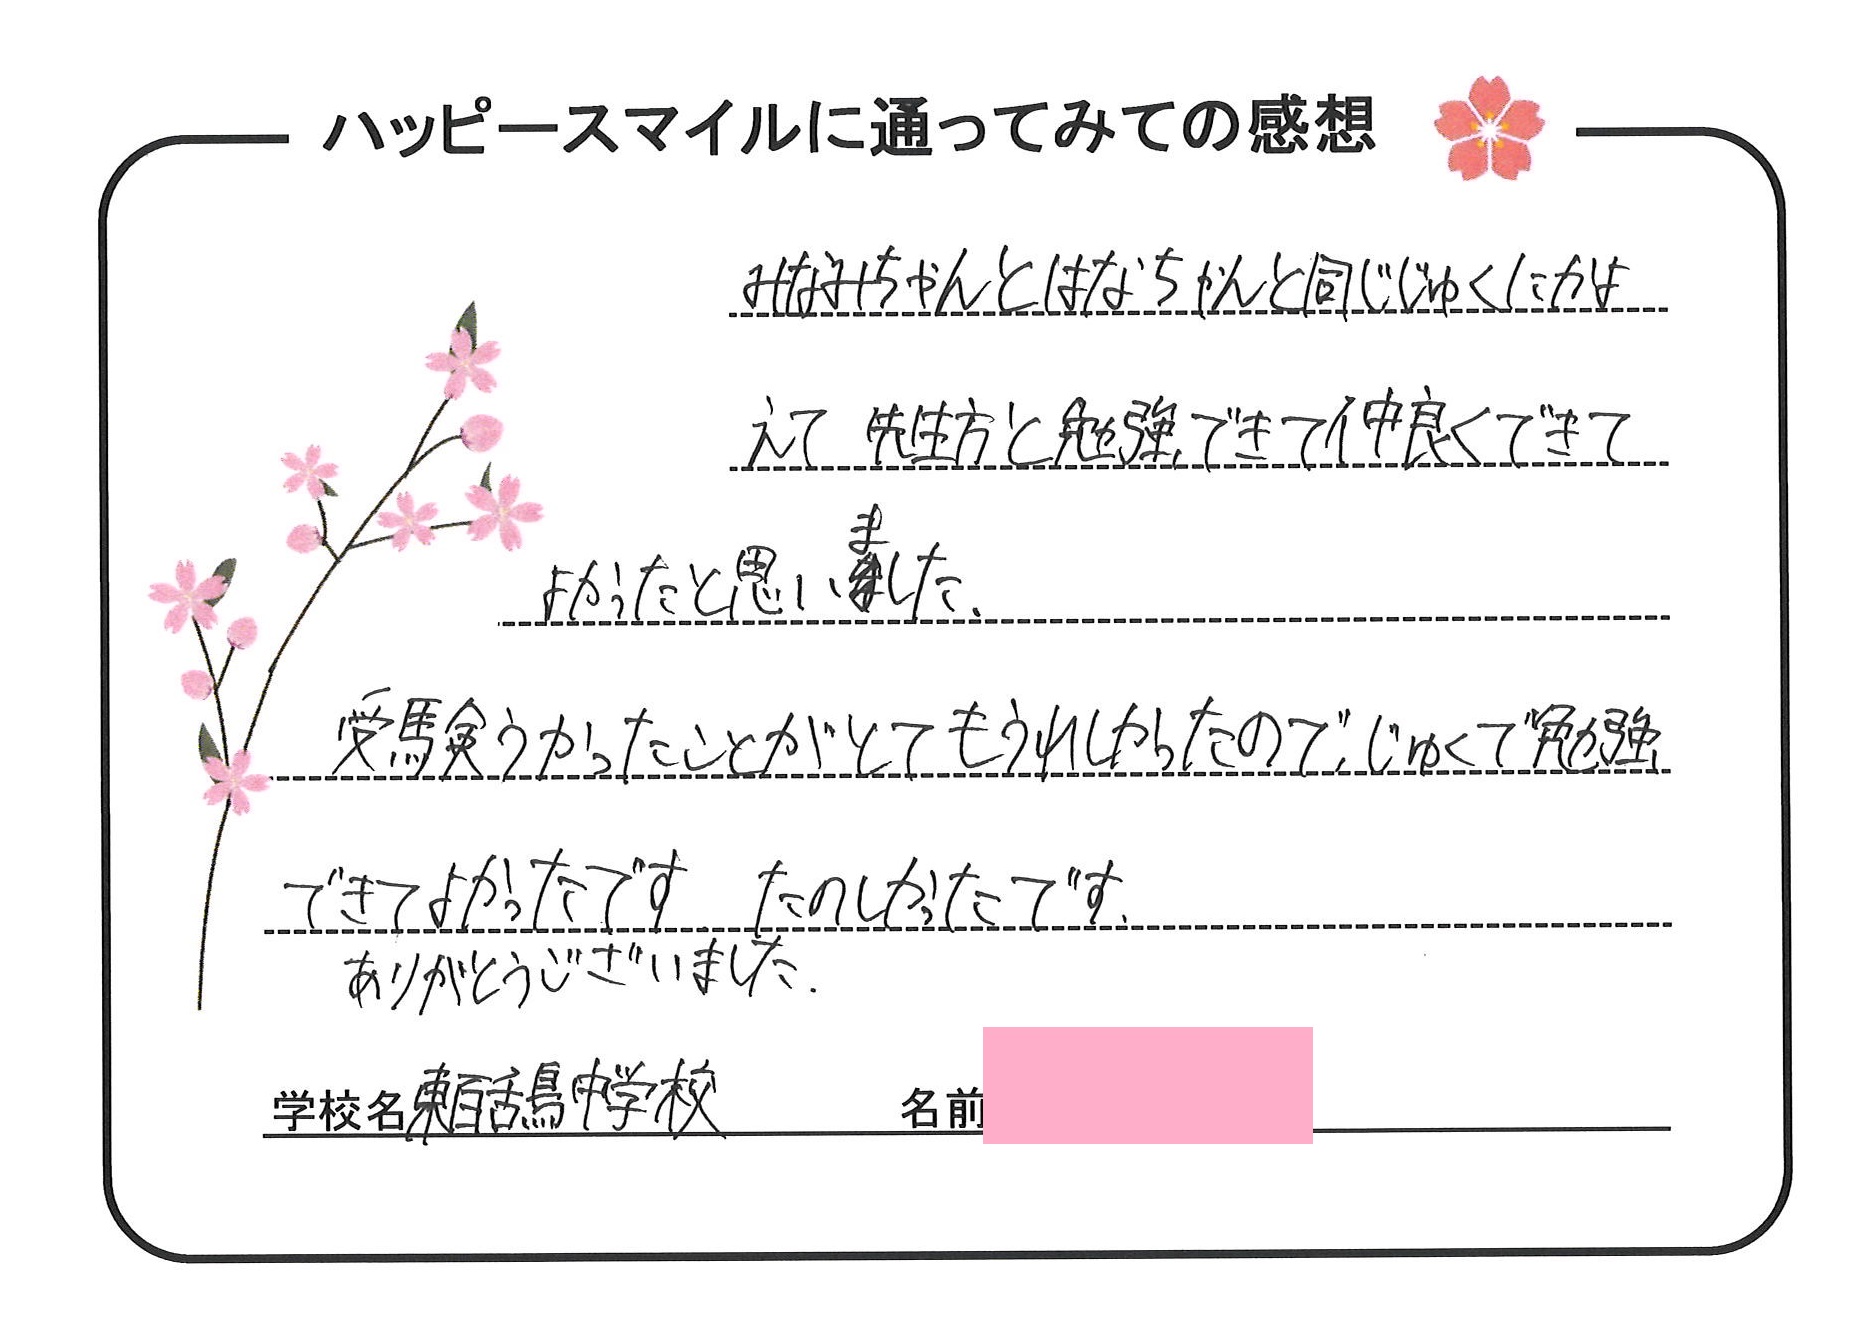 ハッピースマイルに通ってみての感想
みなみちゃんとはなちゃんと同じじゅくにかよ
えて 先生方と勉強できて仲良くできて
よかったと思いました.
受験うかったことがとてもうれしかったので、じゅくで勉強
できてよかったです たのしかったです.
ありがとうございました.
学校名 東百舌鳥中学校 名前